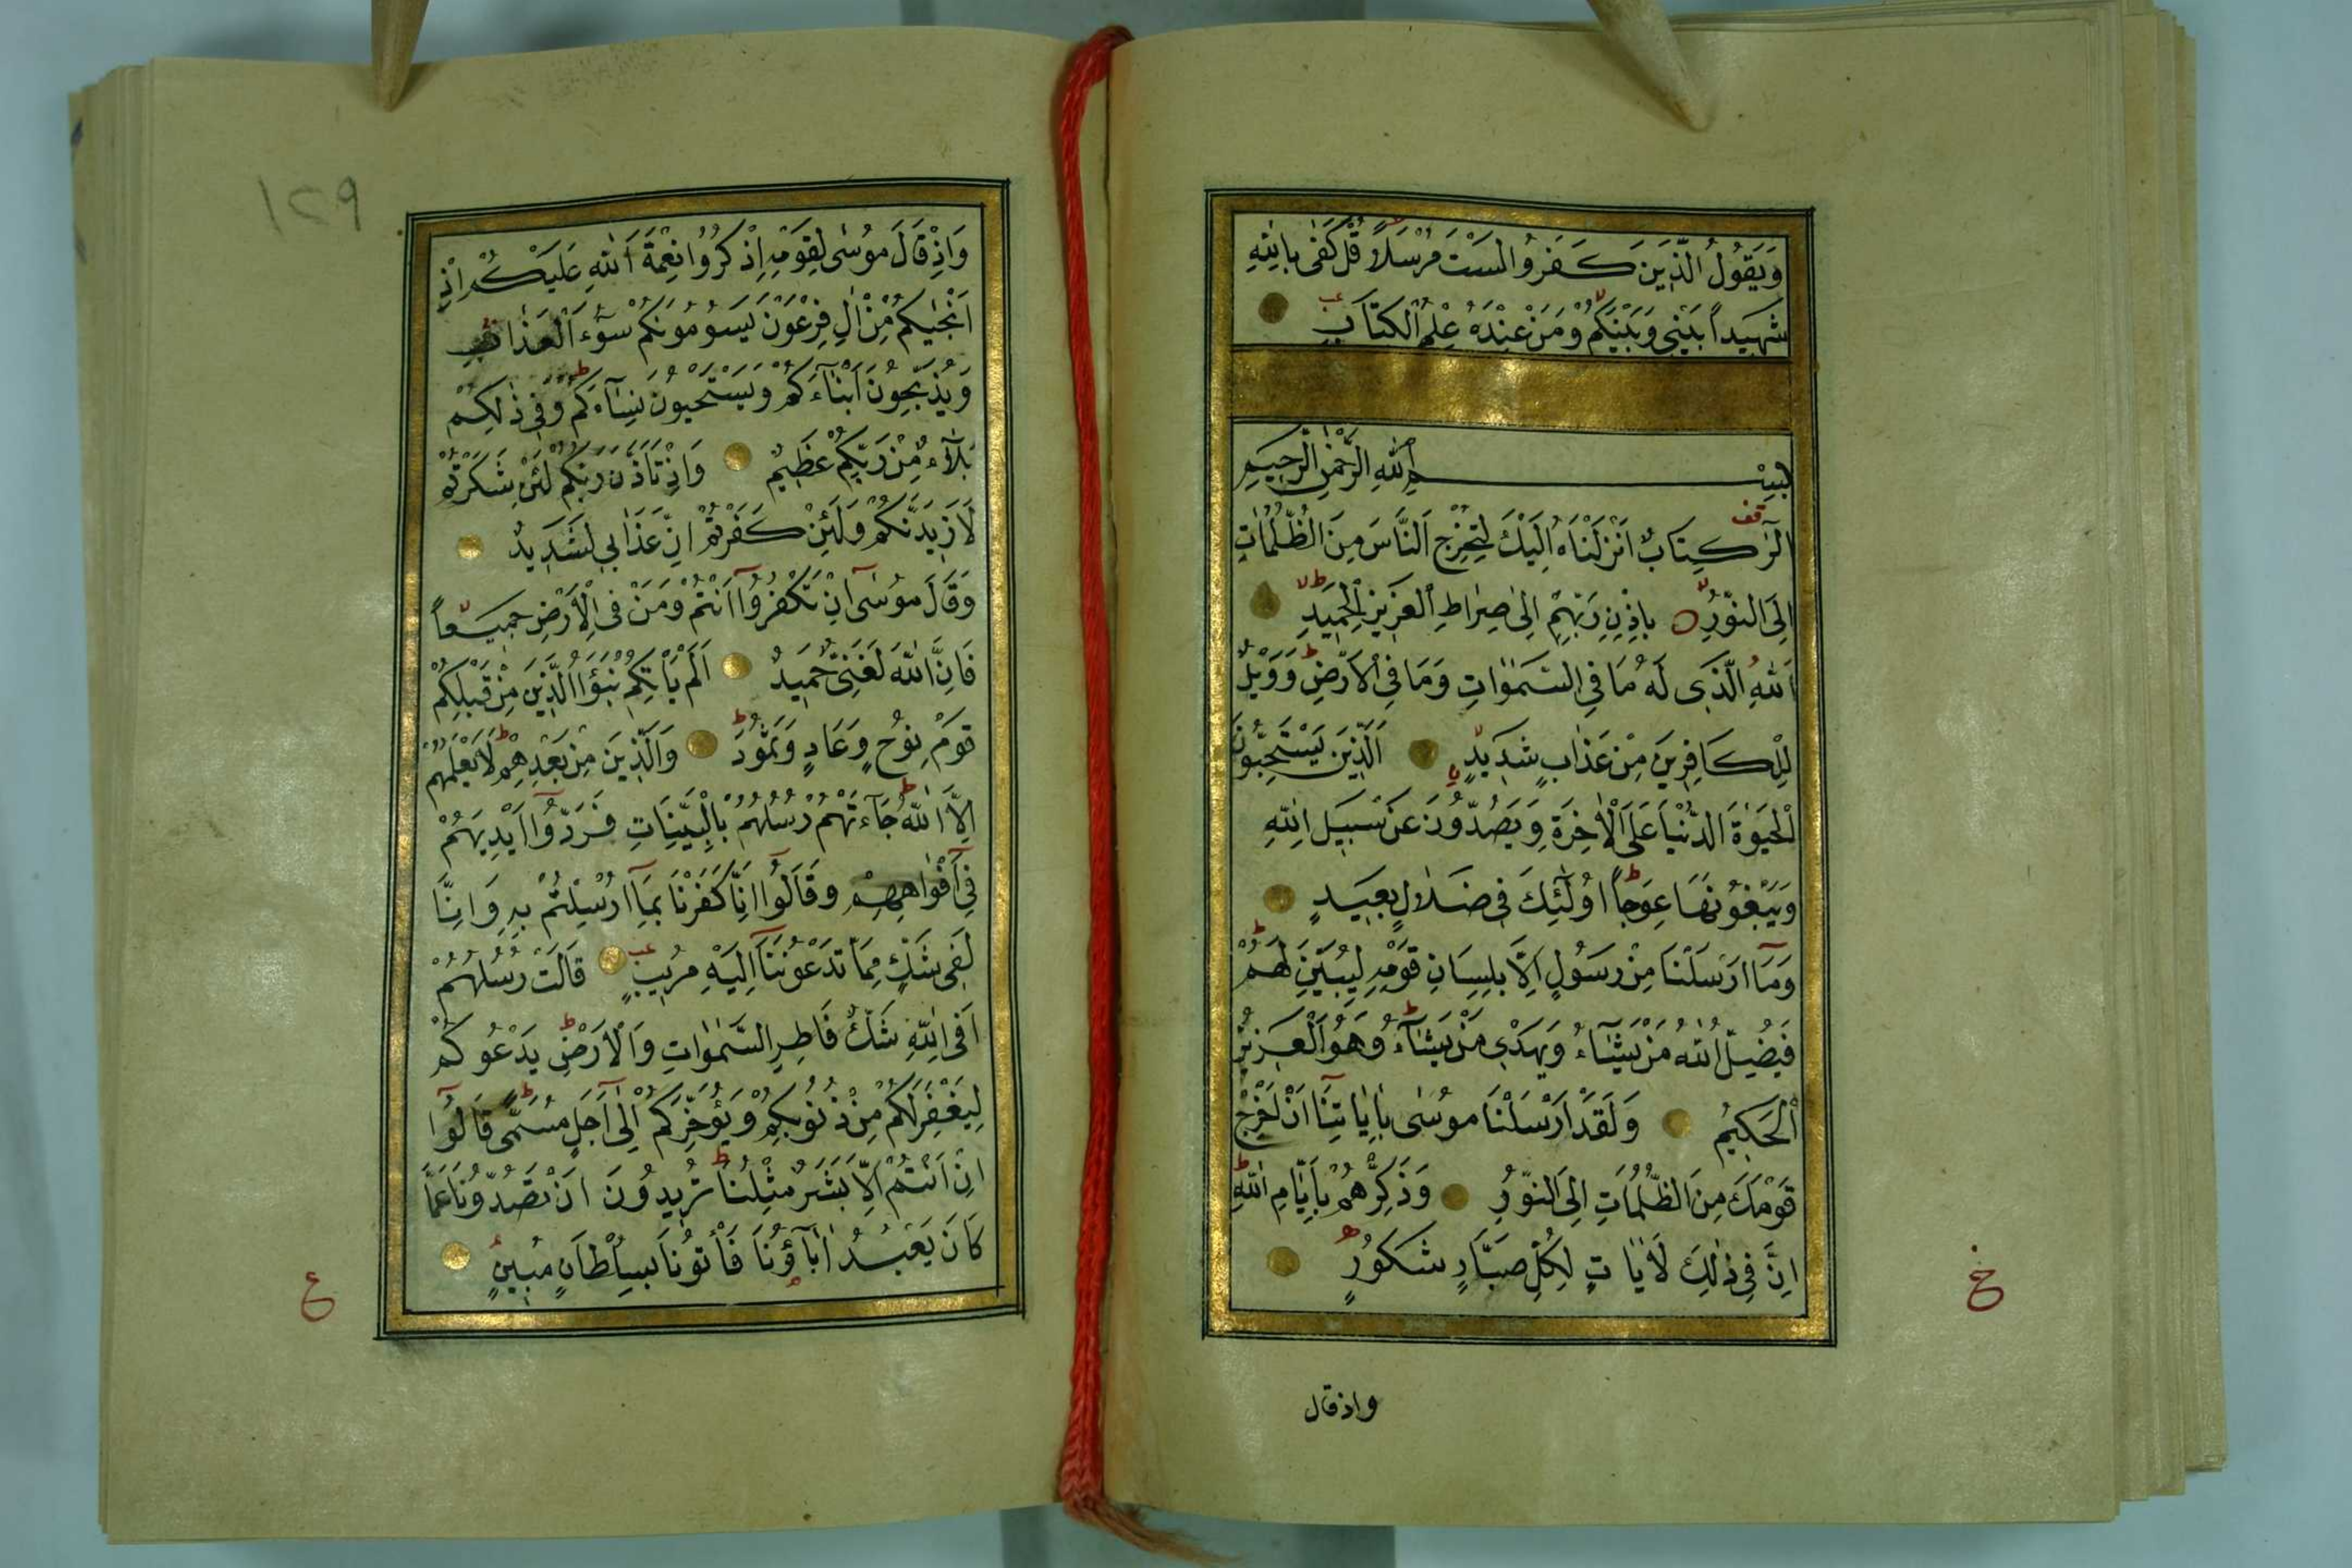 وَيَقُولُ الَّذِينَ كَفَرُوا لَسْتَ مُرْسَلًا قُلْ كَفٰى بِاللّٰهِ
شَهِيدًا بَيْنِى وَبَيْنَكُمْ وَمَنْ عِنْدَهُ عِلْمُ الْكِتَابِ
بِسْمِ اللّٰهِ الرَّحْمٰنِ الرَّحِيمِ
الٓرٰ كِتَابٌ اَنْزَلْنَاهُ اِلَيْكَ لِتُخْرِجَ النَّاسَ مِنَ الظُّلُمَاتِ
اِلَى النُّورِ بِاِذْنِ رَبِّهِمْ اِلٰى صِرَاطِ الْعَزِيزِ الْحَمِيدِ
اَللّٰهِ الَّذِى لَهُ مَا فِى السَّمٰوَاتِ وَمَا فِى الْاَرْضِ وَوَيْلٌ
لِلْكَافِرِينَ مِنْ عَذَابٍ شَدِيدٍ اَلَّذِينَ يَسْتَحِبُّونَ
الْحَيٰوةَ الدُّنْيَا عَلَى الْاٰخِرَةِ وَيَصُدُّونَ عَنْ سَبِيلِ اللّٰهِ
وَيَبْغُونَهَا عِوَجًا اُولٰٓئِكَ فِى ضَلَالٍ بَعِيدٍ
وَمَآ اَرْسَلْنَا مِنْ رَسُولٍ اِلَّا بِلِسَانِ قَوْمِهِ لِيُبَيِّنَ لَهُمْ
فَيُضِلُّ اللّٰهُ مَنْ يَشَآءُ وَيَهْدِى مَنْ يَشَآءُ وَهُوَ الْعَزِيزُ
الْحَكِيمُ وَلَقَدْ اَرْسَلْنَا مُوسٰى بِاٰيَاتِنَآ اَنْ اَخْرِجْ
قَوْمَكَ مِنَ الظُّلُمَاتِ اِلَى النُّورِ وَذَكِّرْهُمْ بِاَيَّامِ اللّٰهِ
اِنَّ فِى ذٰلِكَ لَاٰيَاتٍ لِكُلِّ صَبَّارٍ شَكُورٍ
واذ قال
١٢٩
وَاِذْ قَالَ مُوسٰى لِقَوْمِهِ اِذْكُرُوا نِعْمَةَ اللّٰهِ عَلَيْكُمْ اِذْ
اَنْجٰيكُمْ مِنْ اٰلِ فِرْعَوْنَ يَسُومُونَكُمْ سُوٓءَ الْعَذَابِ
وَيُذَبِّحُونَ اَبْنَآءَكُمْ وَيَسْتَحْيُونَ نِسَآءَكُمْ وَفِى ذٰلِكُمْ
بَلَآءٌ مِنْ رَبِّكُمْ عَظِيمٌ وَاِذْ تَاَذَّنَ رَبُّكُمْ لَئِنْ شَكَرْتُمْ
لَاَزِيدَنَّكُمْ وَلَئِنْ كَفَرْتُمْ اِنَّ عَذَابِى لَشَدِيدٌ
وَقَالَ مُوسٰٓى اِنْ تَكْفُرُوٓا اَنْتُمْ وَمَنْ فِى الْاَرْضِ جَمِيعًا
فَاِنَّ اللّٰهَ لَغَنِىٌّ حَمِيدٌ اَلَمْ يَاْتِكُمْ نَبَؤُا الَّذِينَ مِنْ قَبْلِكُمْ
قَوْمِ نُوحٍ وَعَادٍ وَثَمُودَ وَالَّذِينَ مِنْ بَعْدِهِمْ لَا يَعْلَمُهُمْ
اِلَّا اللّٰهُ جَآءَتْهُمْ رُسُلُهُمْ بِالْبَيِّنَاتِ فَرَدُّوٓا اَيْدِيَهُمْ
فِىٓ اَفْوَاهِهِمْ وَقَالُوٓا اِنَّا كَفَرْنَا بِمَآ اُرْسِلْتُمْ بِهِ وَاِنَّا
لَفِى شَكٍّ مِمَّا تَدْعُونَنَآ اِلَيْهِ مُرِيبٍ قَالَتْ رُسُلُهُمْ
اَفِى اللّٰهِ شَكٌّ فَاطِرِ السَّمٰوَاتِ وَالْاَرْضِ يَدْعُوكُمْ
لِيَغْفِرَ لَكُمْ مِنْ ذُنُوبِكُمْ وَيُؤَخِّرَكُمْ اِلٰٓى اَجَلٍ مُسَمًّى قَالُوٓا
اِنْ اَنْتُمْ اِلَّا بَشَرٌ مِثْلُنَا تُرِيدُونَ اَنْ تَصُدُّونَا عَمَّا
كَانَ يَعْبُدُ اٰبَآؤُنَا فَأْتُونَا بِسُلْطَانٍ مُبِينٍ
ع